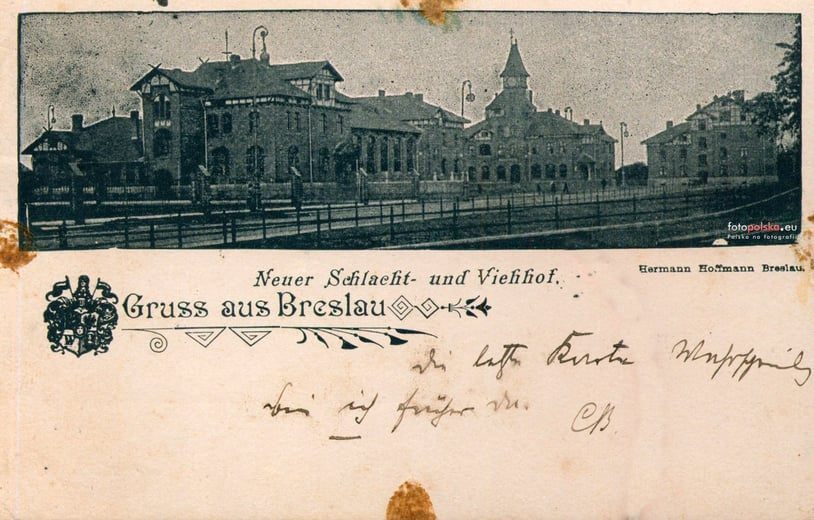 fotopolska.eu
Polska na fotografii
Neuer Schlacht- und Viehhof.
Hermann Hoffmann Breslau.
Gruss aus Breslau
W
die letzte Karte
bin ich früher da.
CB.